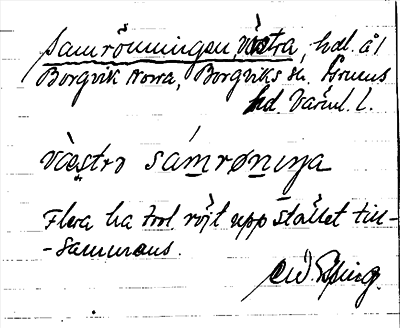 Samrönningen, västra, hdl. å l
Borgvik Norra, Borgviks sn. Grums
hd. Värml. l.
væstrɷ sámrønıŋa
Flera ha trol. röjt upp stället till-
-sammans.